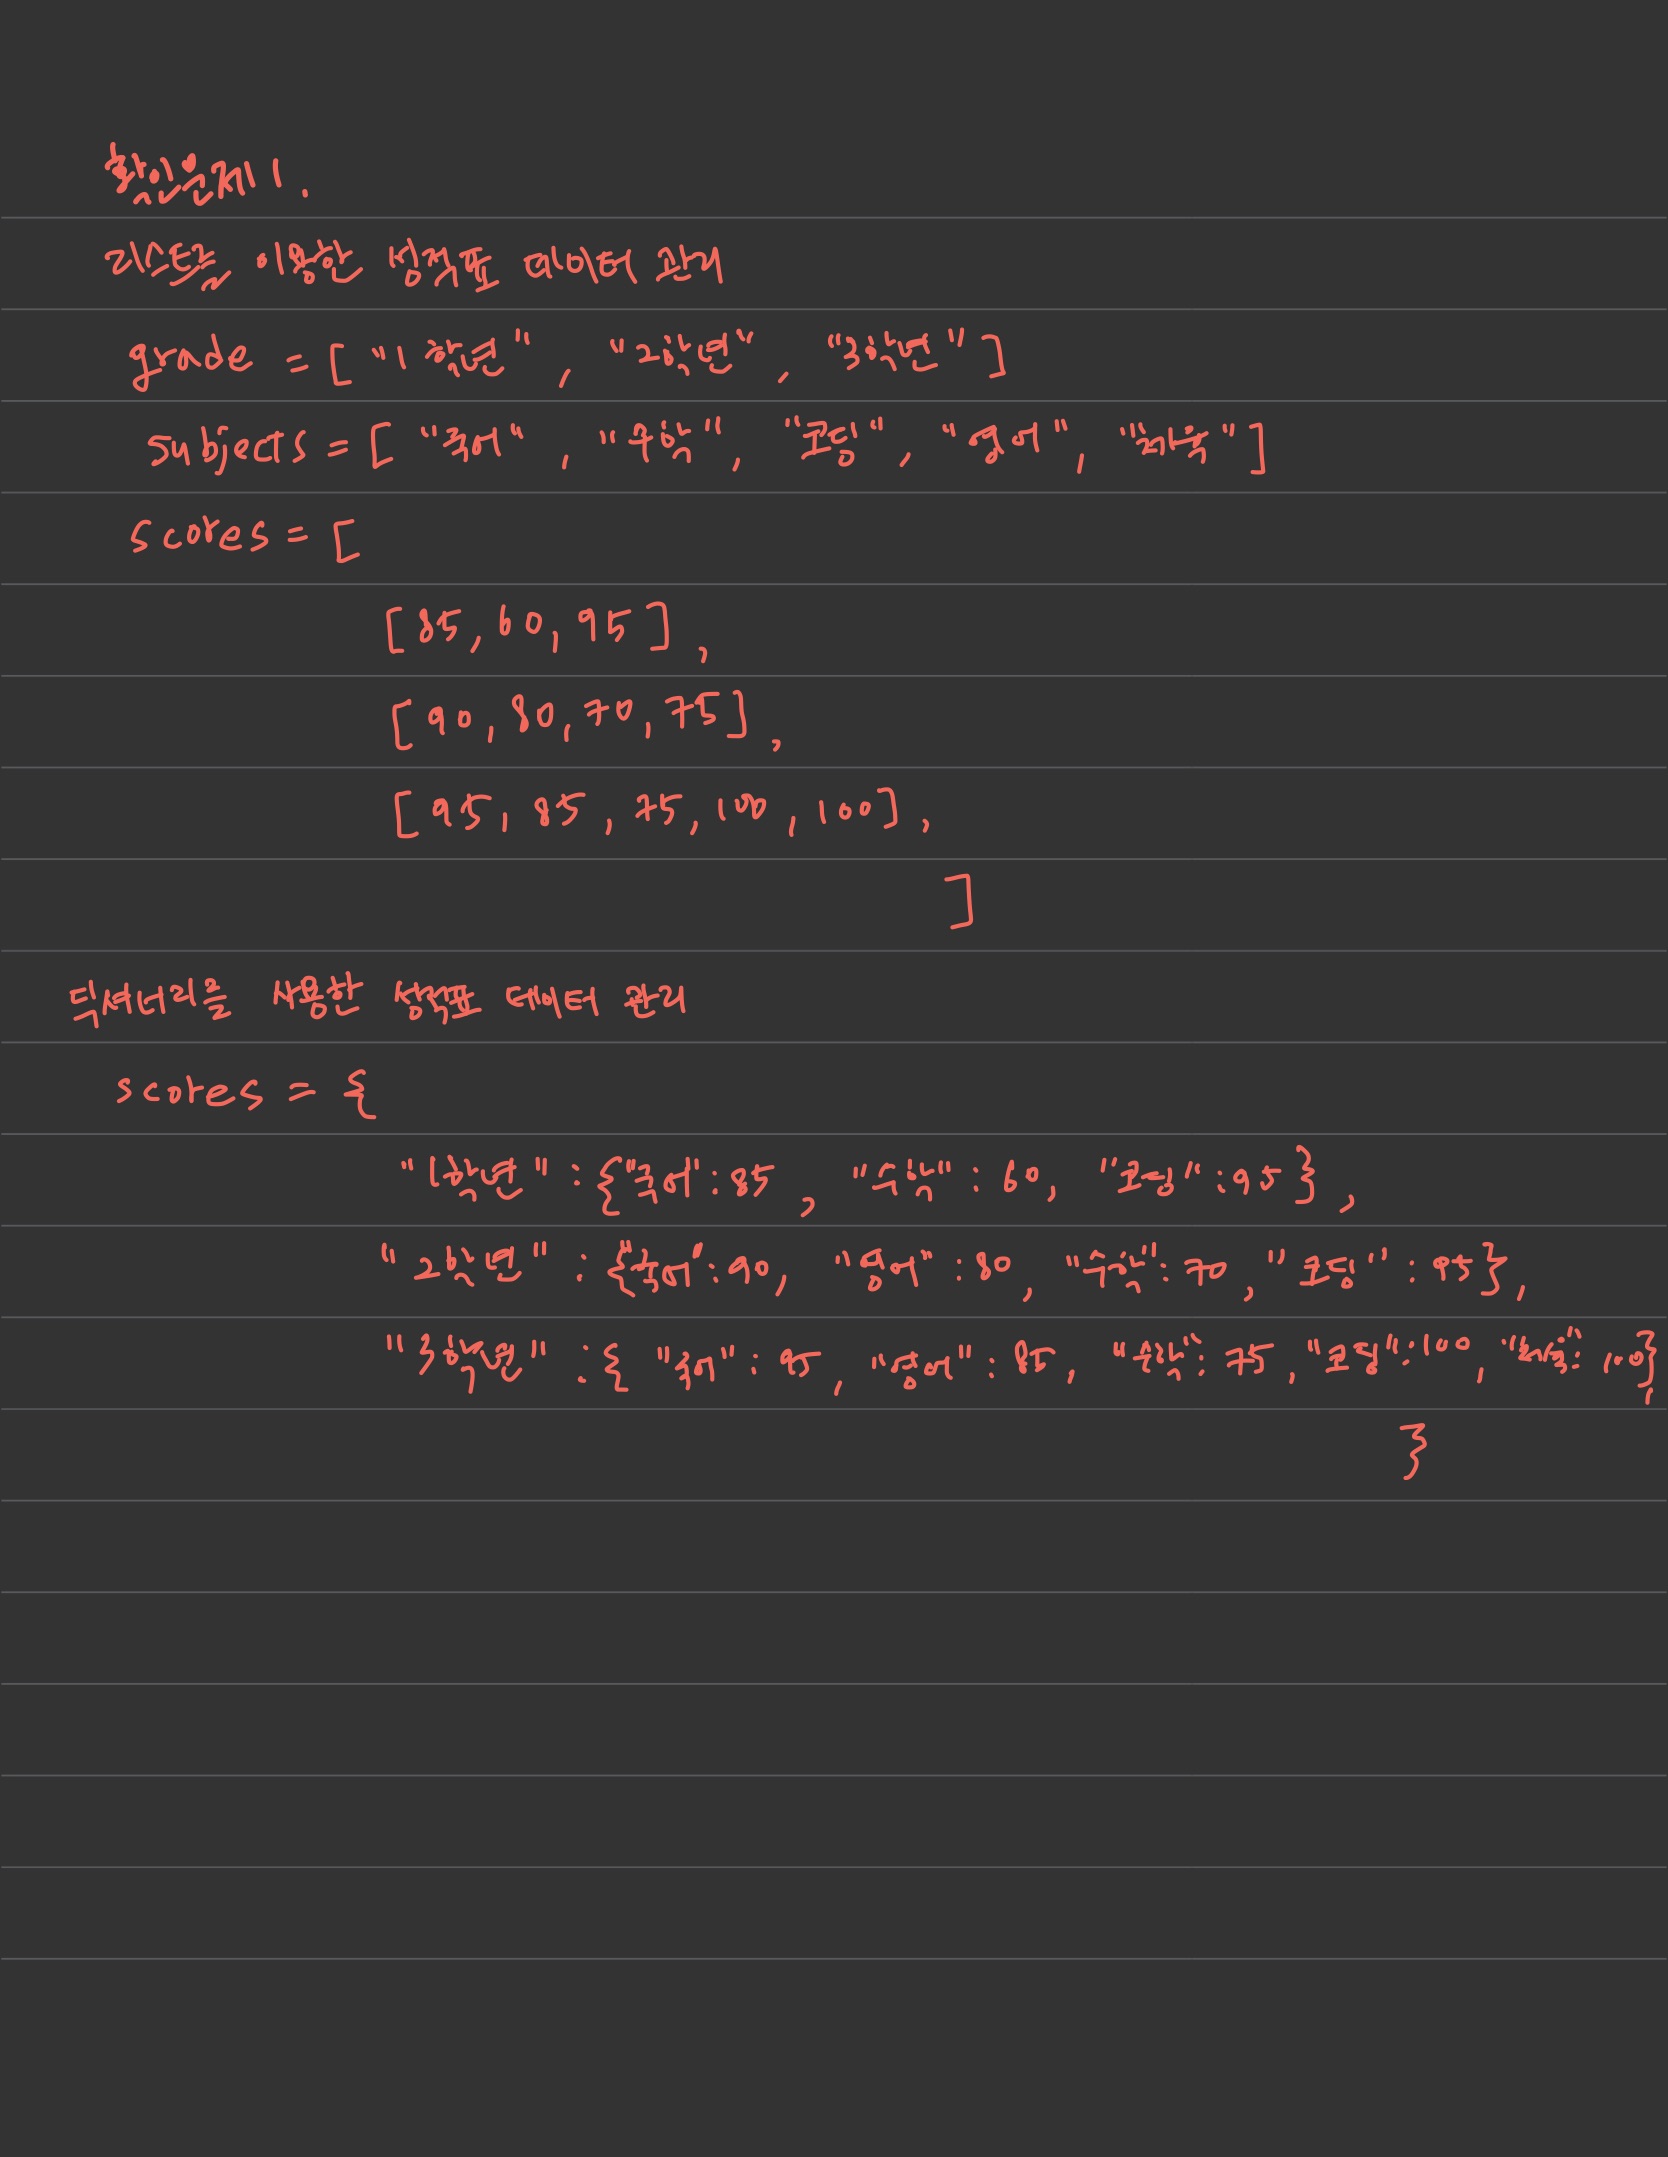 확인문제 1.
리스트를 이용한 성적표 데이터 관리
grade = [ "1학년" , "2학년" , "3학년" ]
subjects = [ "국어" , "수학" , "코딩" , "영어" , "과학" ]
scores = [
[ 85, 60, 95 ] ,
[ 90, 80, 70, 75 ] ,
[ 95, 85, 75, 100, 100 ] ,
]
딕셔너리를 사용한 성적표 데이터 관리
scores = {
"1학년" : {"국어" : 85 , "수학" : 60, "코딩" : 95 } ,
"2학년" : {"국어" : 90, "영어" : 80, "수학" : 70 , "코딩" : 95 } ,
"3학년" : { "국어" : 95 , "영어" : 85, "수학" : 75 , "코딩" : 100 , : 100} ,
}